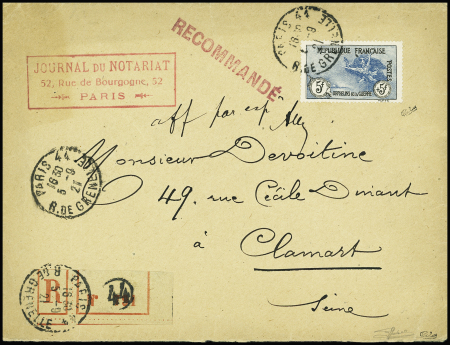 JOURNAL DU NOTARIAT
52, Rue de Bourgogne, 52
PARIS
RECOMMANDÉ
PARIS 44
16 30
5 - 9
21
R. DE GRENELLE
REPUBLIQUE FRANÇAISE
POSTES
5F
ORPHELINS DE LA GUERRE
5F
aff par
Monsieur Devoitine
49, rue Cécile Dinant
à
Clamart
Seine
PARIS 44
16 30
5 - 9
21
R. DE GRENELLE
R
44
PARIS 44
R. DE GRENELLE